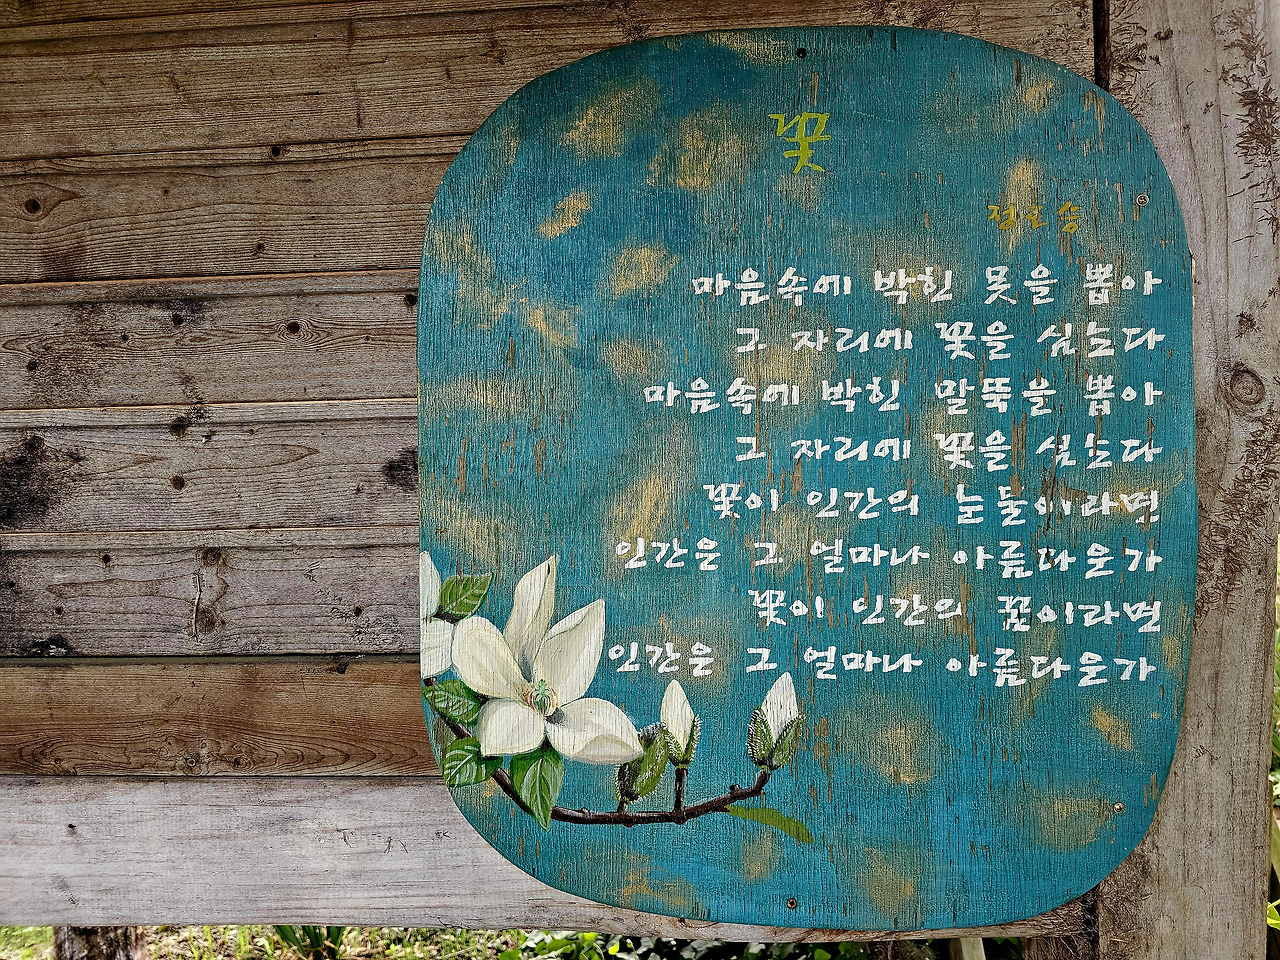 꽃
정호승
마음속에 박힌 못을 뽑아
그 자리에 꽃을 심는다
마음속에 박힌 말뚝을 뽑아
그 자리에 꽃을 심는다
꽃이 인간의 눈물이라면
인간은 그 얼마나 아름다운가
꽃이 인간의 꿈이라면
인간은 그 얼마나 아름다운가